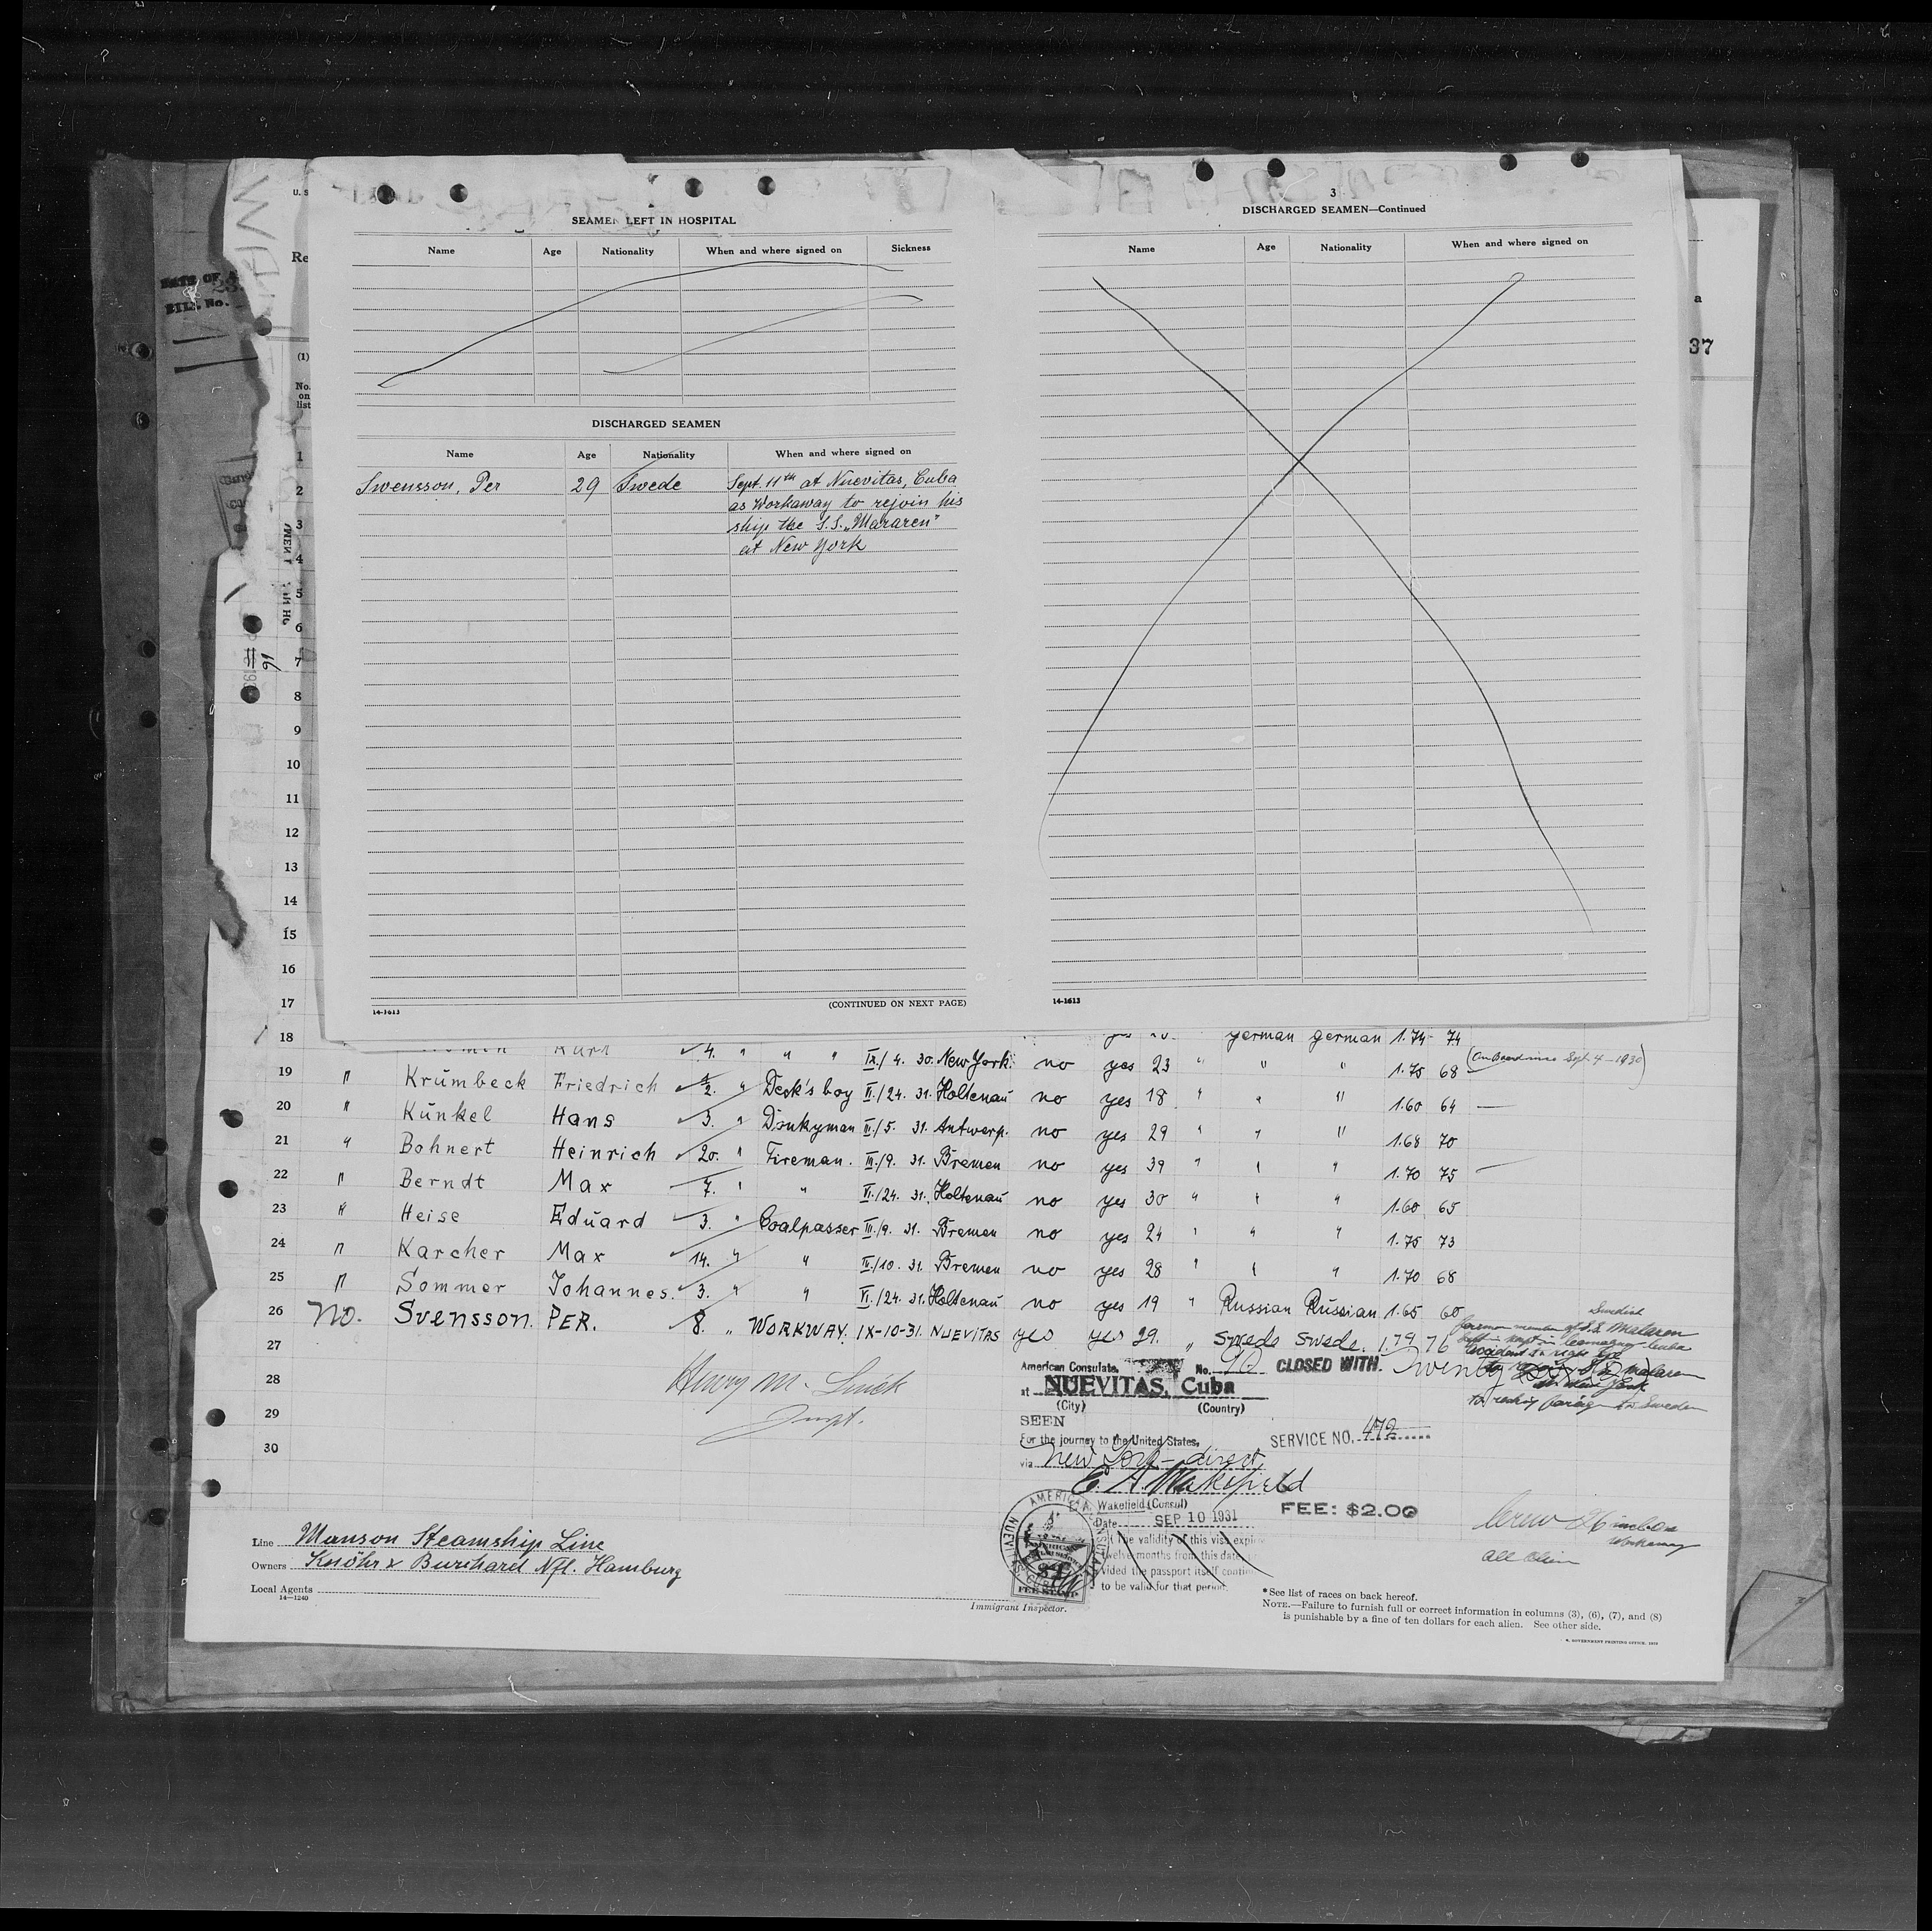 U. S
Re
DATE OF A
23
BILL No.
(1)
No.
on
list
37
a
SEAMEN LEFT IN HOSPITAL
Name Age Nationality When and where signed on Sickness
DISCHARGED SEAMEN
Name Age Nationality When and where signed on
Swensson, Per 29 Swede Sept. 11th at Nuevitas, Cuba
as Workaway to rejoin his
ship the S.S. „Mararen"
at New York
14-1613
(CONTINUED ON NEXT PAGE)
3
DISCHARGED SEAMEN—Continued
Name Age Nationality When and where signed on
14-1613
1
2
3
4
5
6
7
8
9
10
11
12
13
14
15
16
17
18 german german 1.74 74
Kurt 4. " " " IX./4. 30. New York. no yes 23 " " " 1.75 68 (On Board since Sept 4-1930)
19 " Krümbeck Friedrich 1/2. " Desk's boy II./24. 31. Holtenau no yes 18 " " " 1.60 64 —
20 " Künkel Hans 3. " Donkyman III./5. 31. Antwerp. no yes 29 " " " 1.68 70
21 " Bohnert Heinrich 20. " Fireman. III./9. 31. Bremen no yes 39 " " " 1.70 75 —
22 " Berndt Max 7. " " VI./24. 31. Holtenau no yes 30 " " " 1.60 65
23 " Heise Eduard 3. " Coalpasser III./9. 31. Bremen no yes 24 " " " 1.75 73
24 " Karcher Max 14. " " II./10. 31. Bremen no yes 28 " " " 1.70 68
25 " Sommer Johannes. 3. " " VI./24. 31. Holtenau no yes 19 " Russian Russian 1.65 60
26 No. Svensson. PER. 8. „ WORKWAY. IX-10-31. NUEVITAS yes yes 29. „ Swede Swede. 1.79 76
27
28
29
30
Swedish
former member of S.S. Mataren
left in hospt in Camaguey Cuba
Henry M.
American Consulate, No. CLOSED WITH. Twenty
at NUEVITAS, Cuba
(City) (Country)
SEEN
For the journey to the United States,
via New York - direct
SERVICE NO. 472
E. A. Wakefield
E. A. Wakefield (Consul)
Date SEP 10 1931
FEE: $2.00
The validity of this visa expires
twelve months from this date,
vided the passport itself contin
to be valid for that period.
AMERICAN CONSULATE NUEVITAS, CUBA
$2
FEE STAMP
Crew
Workaway
all alien
Line Munson Steamship Line
Owners Knöhr & Burchard Nfl. Hamburg
Local Agents
14—1240
Immigrant Inspector.
*See list of races on back hereof.
NOTE.—Failure to furnish full or correct information in columns (3), (6), (7), and (8)
is punishable by a fine of ten dollars for each alien. See other side.